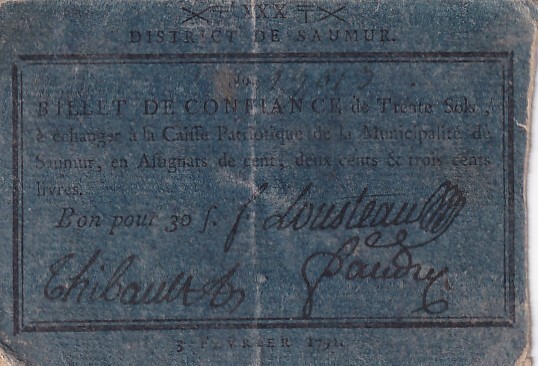 XXX
DISTRICT DE SAUMUR.
No.
BILLET DE CONFIANCE, de Trente Sols,
à échanger à la Caisse Patriotique de la Municipalité de
Saumur, en Assignats de cent, deux cents & trois cents
livres.
Bon pour 30 s. f Lousteau
Thibault
3 FÉVRIER 1791.